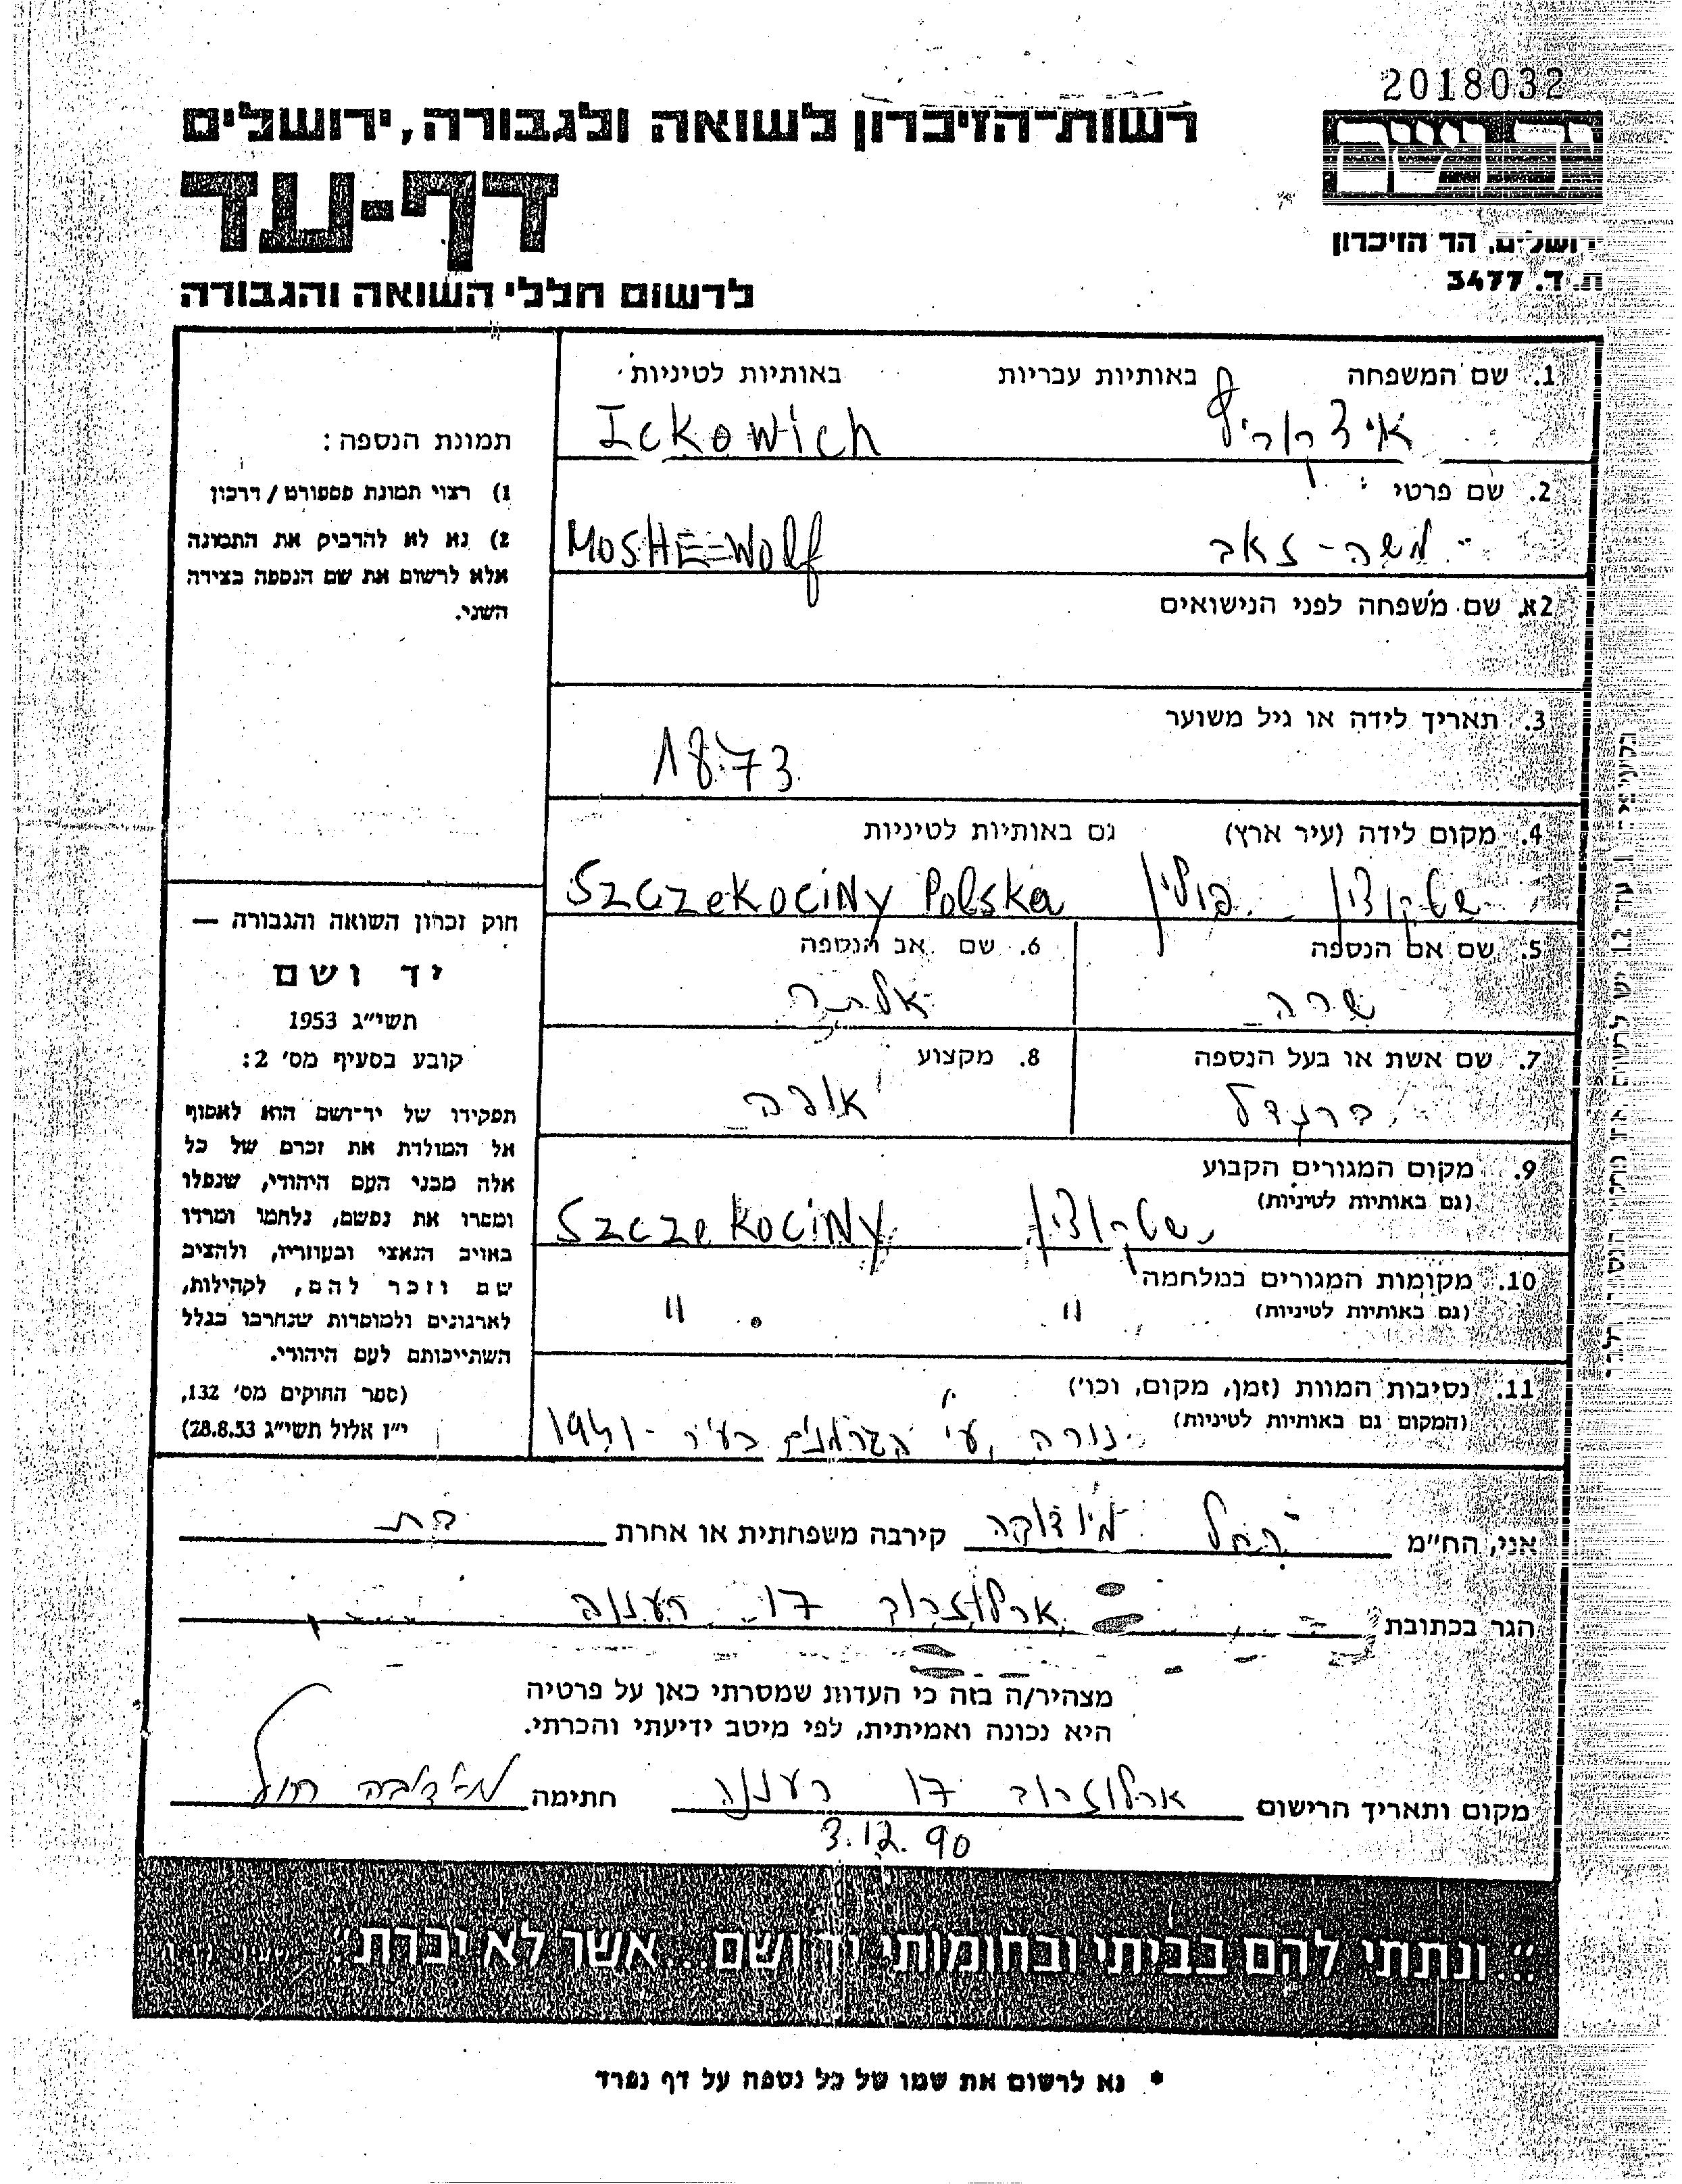 2018032
רשות-הזיכרון לשואה ולגבורה, ירושלים
יד ושם
דף-עד
ירושלים, הר הזיכרון
ת. ד. 3477
לרשום חללי השואה והגבורה
1. שם המשפחה באותיות עבריות באותיות לטיניות
איצקוביץ Ickowich
2. שם פרטי
משה - זאב MOSHE=Wolf
2א. שם משפחה לפני הנישואים
3. תאריך לידה או גיל משוער
1873
4. מקום לידה (עיר ארץ) גם באותיות לטיניות
שטקוצין פולין Szczekociny Polska
5. שם אם הנספה 6. שם אב הנספה
שרה
7. שם אשת או בעל הנספה 8. מקצוע
ברנדל אופה
9. מקום המגורים הקבוע
(גם באותיות לטיניות)
שטקוצין Szczekociny
10. מקומות המגורים במלחמה
(גם באותיות לטיניות)
" "
11. נסיבות המוות (זמן, מקום, וכו')
(המקום גם באותיות לטיניות)
נורה ע"י הגרמנים בעיר - 1941
תמונת הנספה:
1) רצוי תמונת פספורט / דרכון
2) נא לא להדביק את התמונה
אלא לרשום את שם הנספה בצידה
השני.
חוק זכרון השואה והגבורה —
יד ושם
תשי"ג 1953
קובע בסעיף מס' 2:
תפקידו של יד-ושם הוא לאסוף
אל המולדת את זכרם של כל
אלה מבני העם היהודי, שנפלו
ומסרו את נפשם, נלחמו ומרדו
באויב הנאצי ובעוזריו, ולהציב
שם וזכר להם, לקהילות,
לארגונים ולמוסדות שנחרבו בגלל
השתייכותם לעם היהודי.
(ספר החוקים מס' 132,
י"ז אלול תשי"ג 28.8.53)
אני, הח"מ רחל קירבה משפחתית או אחרת בת
הגר בכתובת ארלוזרוב 17 רעננה
מצהיר/ה בזה כי העדות שמסרתי כאן על פרטיה
היא נכונה ואמיתית, לפי מיטב ידיעתי והכרתי.
מקום ותאריך הרישום ארלוזרוב 17 רעננה חתימה
3.12.90
"...ונתתי להם בביתי ובחומותי יד ושם...אשר לא יכרת"
* נא לרשום את שמו של כל נספה על דף נפרד